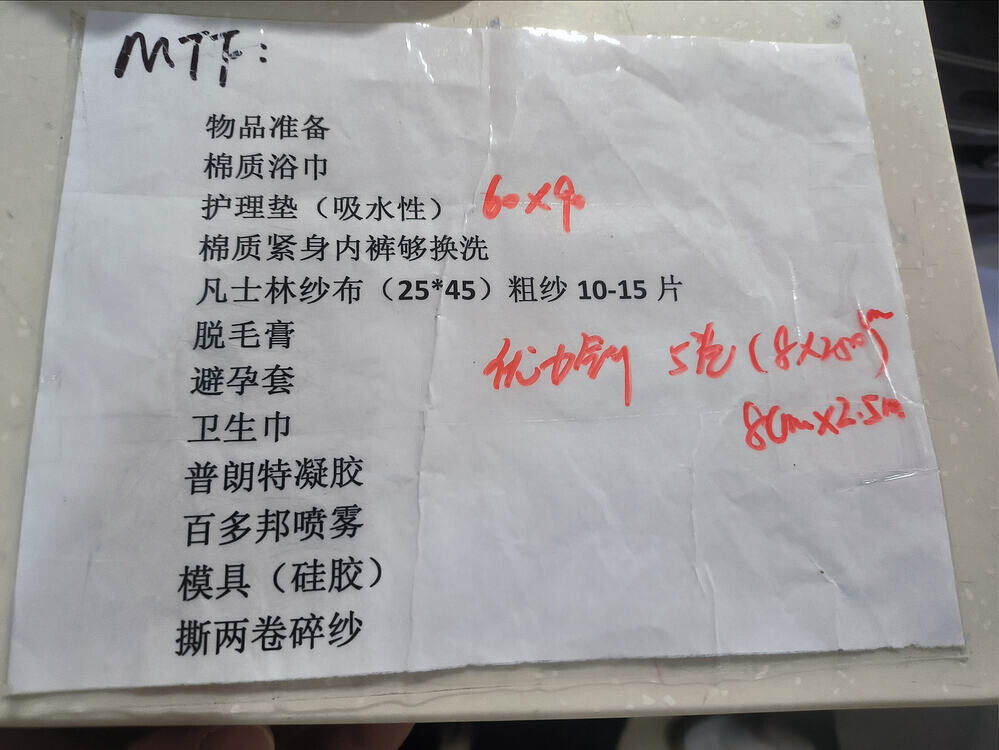 MTF:
物品准备
棉质浴巾
护理垫（吸水性） 60×90
棉质紧身内裤够换洗
凡士林纱布（25*45）粗纱 10-15 片
脱毛膏
优力舒 5卷 (8×250cm)
避孕套
8cm×2.5m
卫生巾
普朗特凝胶
百多邦喷雾
模具（硅胶）
撕两卷碎纱